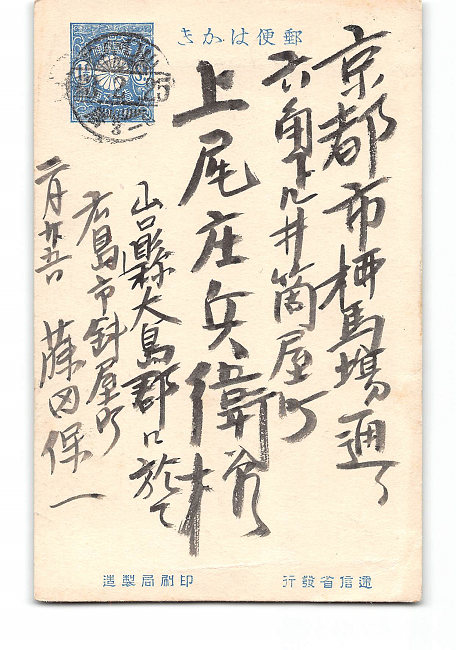 郵便はかき
京都市柳馬場通り
六角下ル井筒屋町
上尾庄兵衛様
山口縣大島郡ニ於て
広島市針屋町
藤田保一
二月廿五日
印刷局製造
逓信省發行